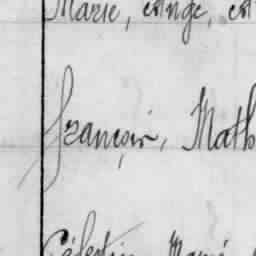 Marie, Ange, et
François, Math
Célestin, Marie